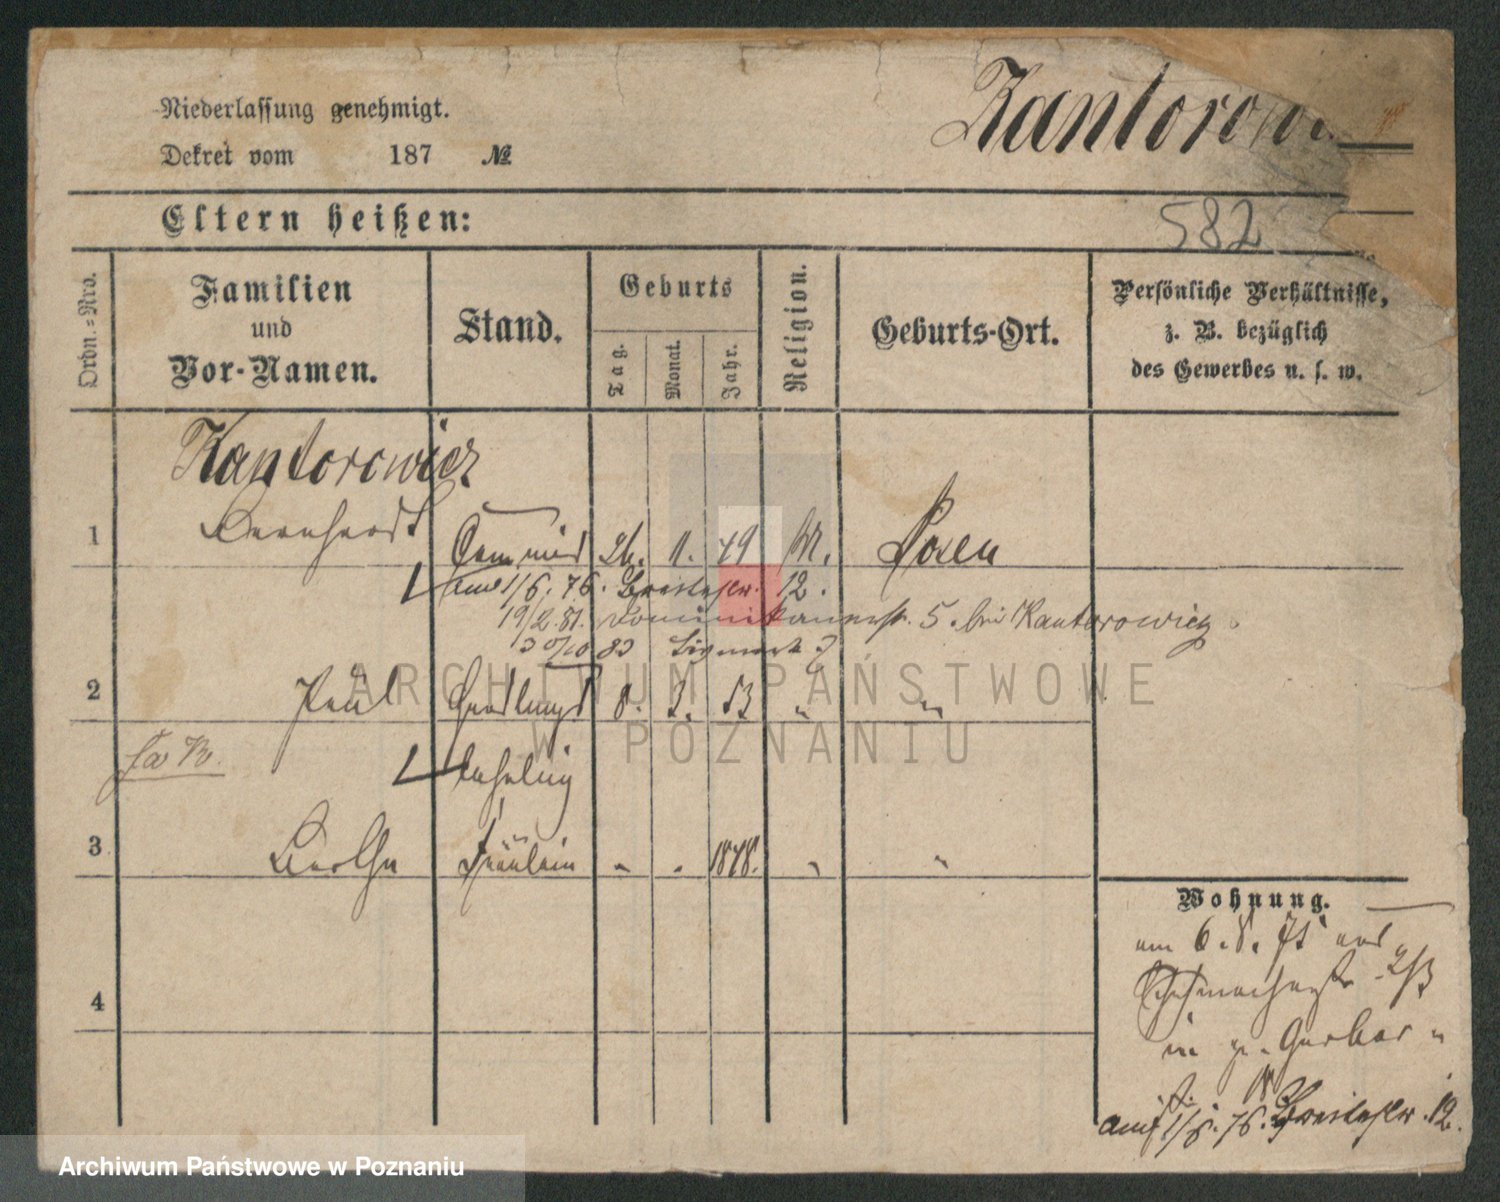 Niederlassung genehmigt.
Kantorow
Dekret vom 187 №
Eltern heißen:
582
Ordn.-Nro.
Familien und Vor-Namen.
Stand.
Geburts
Tag.
Monat.
Jahr.
Religion.
Geburts-Ort.
Persönliche Verhältnisse,
z. B. bezüglich
des Gewerbes u. s. w.
Kantorowicz
1 Bernhardt Commis 26. 1. 49 M. Posen
am 1/6. 76. Breitestr. 12.
19/2. 81. Dominikanerstr. 5. bei Kantorowicz
83
2 Paul Handlungs 8. 3. 53 " "
Lehrling
3 Bertha Fräulein " " 1848. " "
4
Wohnung.
am 6. 8. 75
Schuhmacherstr.
in gr. Gerber
str. 18
am 1/6. 76. Breitestr. 12.
ARCHIWUM PAŃSTWOWE
W POZNANIU
Archiwum Państwowe w Poznaniu